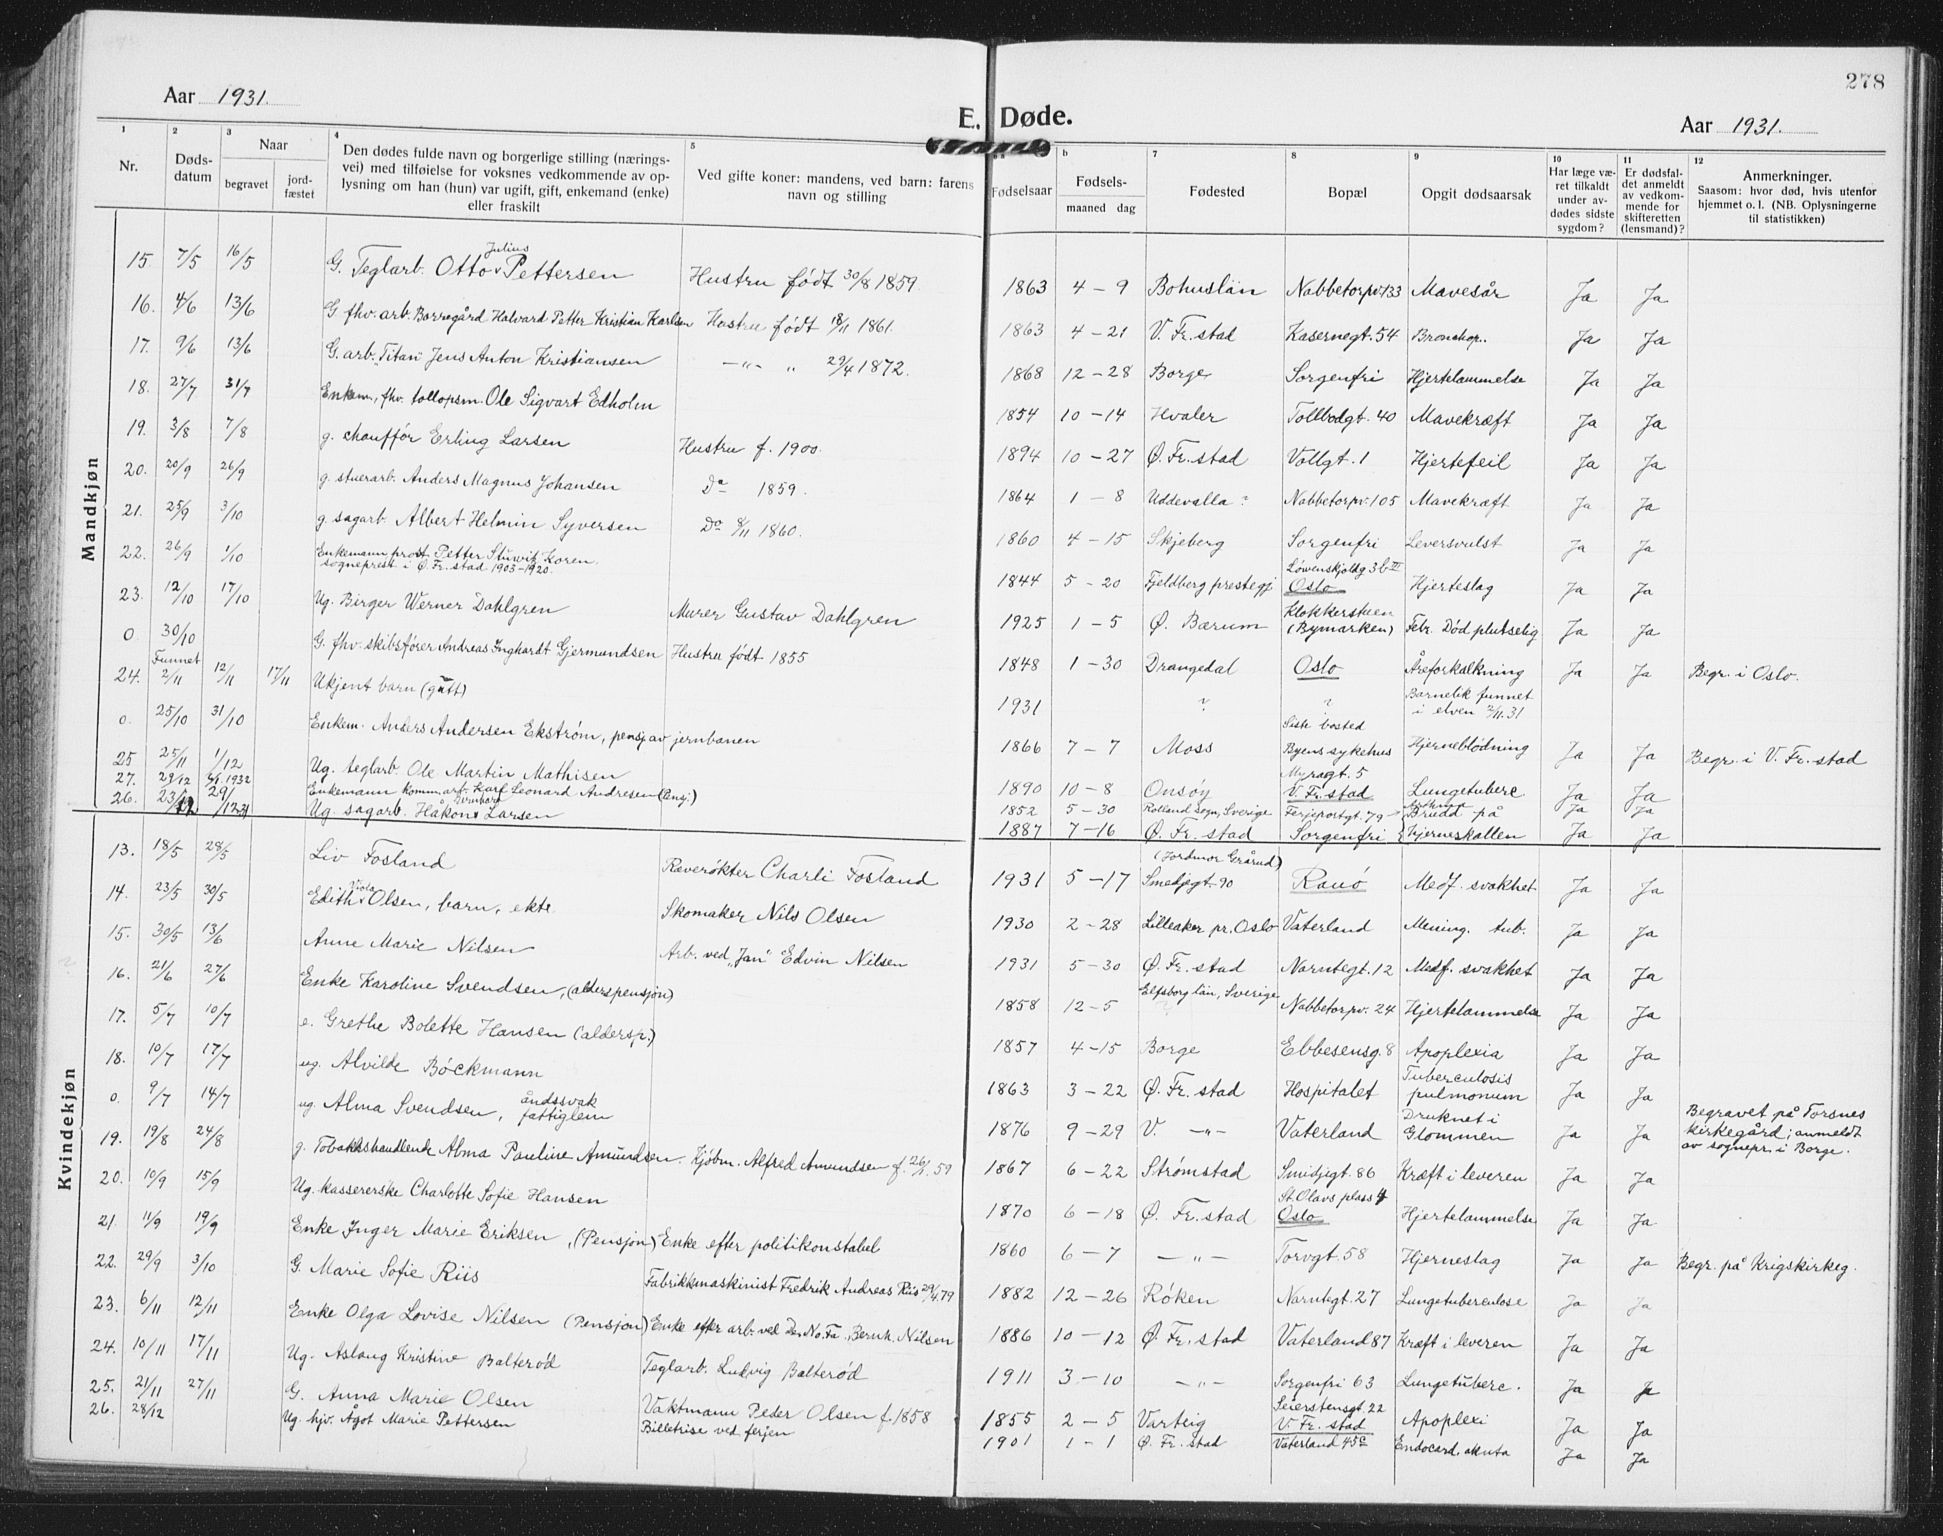 278
Aar 1931.
E. Døde.
Aar 1931.
1 2 3 4 5 6 b 7 8 9 10 11 12
Nr. Døds-datum Naar begravet jord-fæstet Den dødes fulde navn og borgerlige stilling (nærings-vei) med tilføielse for voksnes vedkommende av op-lysning om han (hun) var ugift, gift, enkemand (enke) eller fraskilt Ved gifte koner: mandens, ved barn: farens navn og stilling Fødselsaar Fødsels- maaned dag Fødested Bopæl Opgit dødsaarsak Har læge væ-ret tilkaldt under av-dødes sidste sygdom? Er dødsfal-det anmeldt av vedkom-mende for skifteretten (lensmand)? Anmerkninger. Saasom: hvor død, hvis utenfor hjemmet o. l. (NB. Oplysningerne til statistikken)
Mandkjøn
15. 7/5 16/5 G. Teglarb. Otto Julius Pettersen Hustru født 30/8 1859 1863 4 – 9 Bohuslän Nabbetorpv. 133 Mavesår Ja Ja
16. 4/6 13/6 G fhv. arb. Borregård Halvard Petter Kristian Karlsen Hustru født 18/11 1861. 1863 4 – 21 V. Fr. stad Kasernegt. 54 Ja Ja
17. 9/6 13/6 G. arb. "Titan" Jens Anton Kristiansen –„– „ 29/4 1872. 1868 12 – 28 Borge Sorgenfri Hjertelammelse Ja Ja
18. 27/7 31/7 Enkem., fhv. tollopsm. Ole Sigvart Edholm 1854 10 – 14 Hvaler Tollbodgt. 40 Mavekræft Ja Ja
19. 3/8 7/8 g. chauffør Erling Larsen Hustru f. 1900. 1894 10 – 27 Ø. Fr. stad Vollgt. 1 Hjertefeil Ja Ja
20. 20/9 26/9 g. stuerarb. Anders Magnus Johansen Do 1859. 1864 1 – 8 Uddevalla ? Nabbetorpv. 105 Mavekræft Ja Ja
21. 25/9 3/10 g. sagarb. Albert Helmin Syversen Do 8/11 1860. 1860 4 – 15 Skjeberg Sorgenfri Leversvulst Ja Ja
22. 26/9 1/10 Enkemann prost Petter Stuwitz Koren sogneprest i Ø. Fr. stad 1903–1920. 1844 5 – 20 Fjeldberg prestegj Løwenskjoldg 3b III Oslo Hjerteslag Ja Ja
23. 12/10 17/10 Ug. Birger Werner Dahlgren Murer Gustav Dahlgren 1925 1 – 5 Ø. Bærum Klokkersteen (Bymarken) Febr. Død plutselig Ja Ja
0 30/10 G. fhv. skibsfører Andreas Inghardt Gjermundsen Hustru født 1855 1848 1 – 30 Drangedal Oslo Åreforkalkning Ja Ja Begr. i Oslo.
24. Funnet 2/11 12/11 17/11 Ukjent barn (gutt) 1931 ? ? Barnelik funnet i elven 2/11.31
0. 25/10 31/10 Enkem. Anders Andersen Ekstrøm, pensj av jernbanen 1866 7 – 7 Moss Siste bosted Byens sykehus Hjerneblødning Ja Ja Begr. i V. Fr. stad
25 25/11 1/12 Ug. teglarb. Ole Martin Mathisen 1890 10 – 8 Onsøy Myragt. 5 V. Fr. stad Lungetuberc. Ja Ja
27. 29/12 1932 Enkemann komm. arb. Karl Leonard Andresen (Pensj.) 1852 5 – 30 Rolland sogn, Sverige Ferjeportgt. 79 Ja Ja
26. 23/12 29/12 31 Ug. sagarb. Håkon Larsen 1887 7 – 16 Ø. Fr. stad Sorgenfri Brudd på hjerneskallen Ja Ja
Kvindekjøn
13. 18/5 28/5 Liv Fosland Røverøkter Charli Fosland 1931 5 – 17 (Jordmor Grårud) Smedjegt. 90 Rauø Medf. svakhet Ja Ja
14. 23/5 30/5 Edith Viola Olsen, barn, ekte Skomaker Nils Olsen 1930 2 – 28 Lilleaker pr. Oslo Vaterland Mening. tub. Ja Ja
15. 30/5 13/6 Anne Marie Nilsen Arb. ved „Jan" Edvin Nilsen 1931 5 – 30 Ø. Fr. stad Narntegt. 12 Medf. svakhet Ja Ja
16. 21/6 27/6 Enke Karoline Svendsen, (alderspensjon) 1858 12 – 5 Elfsborg län, Sverige Nabbetorpv. 24 Hjertelammelse Ja Ja
17. 5/7 10/7 e. Grethe Bolette Hansen (aldersp.) 1857 4 – 15 Borge Ebbesensg. 8 Apoplexia Ja Ja
18. 10/7 17/7 ug. Alvilde Bøckmann 1863 3 – 22 Ø. Fr. stad Hospitalet Tuberculosis pulmonum Ja Ja
0. 9/7 14/7 ug. Alma Svendsen, åndssvak fattiglem 1876 9 – 29 V. –„– Vaterland Druknet i Glommen Ja Ja Begravet på Torsnes kirkegård; anmeldt av sognepr. i Borge.
19. 19/8 24/8 g. Tobakkshandlende Alma Pauline Amundsen. Kjøbm. Alfred Amundsen f. 26/1 59 1867 6 – 22 Strømstad Smidjegt. 86 Kræft i leveren Ja Ja
20. 10/9 15/9 Ug. kassererske Charlotte Sofie Hansen 1870 6 – 18 Ø. Fr. stad St. Olavs plass 4 Oslo Hjertelammelse Ja Ja
21. 11/9 19/9 Enke Inger Marie Eriksen, (Pensjon) Enke efter politikonstabel 1860 6 – 7 –„– Torvgt. 58 Hjerneslag Ja Ja Begr. på Krigskirkeg.
22. 29/9 3/10 G. Marie Sofie Riis Fabrikkmaskinist Fredrik Andreas Riis 29/4.79 1882 12 – 26 Røken Narntegt. 27 Lungetuberculose Ja Ja
23. 6/11 12/11 Enke Olga Lovise Nilsen (Pensjon) Enke efter arb. ved De No. Fa. Bernh. Nilsen 1886 10 – 12 Ø. Fr. stad Vaterland 87 Kræft i leveren Ja Ja
24. 10/11 17/11 Ug. Aslaug Kristine Balterød Teglarb. Ludvig Balterød 1911 3 – 10 –„– Sorgenfri 63 Lungetuberc. Ja Ja
25. 21/11 27/11 G. Anna Marie Olsen Vaktmann Peder Olsen f. 1858 1855 2 – 5 Varteig Seierstensgt. 22 V. Fr. stad Apoplexi Ja Ja
26. 28/12 Ug. hjv. Ågot Marie Pettersen Billetrise ved ferjen 1901 1 – 1 Ø. Fr. stad Vaterland 45c Endocard. akuta Ja Ja